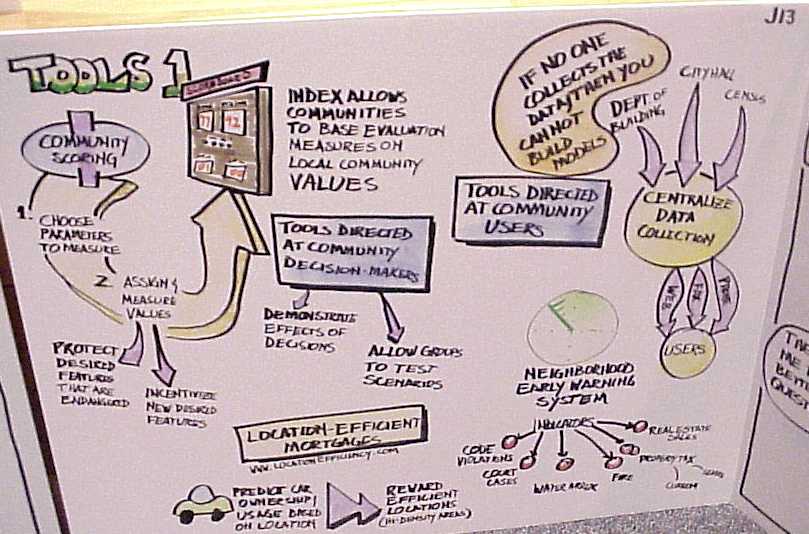 J13
TOOLS 1
SCOREBOARD
COMMUNITY
SCORING
1. CHOOSE
PARAMETERS
TO MEASURE
2. ASSIGN &
MEASURE
VALUES
PROTECT
DESIRED
FEATURES
THAT ARE
ENDANGERED
INCENTIVIZE
NEW DESIRED
FEATURES
INDEX ALLOWS
COMMUNITIES
TO BASE EVALUATION
MEASURES ON
LOCAL COMMUNITY
VALUES
TOOLS DIRECTED
AT COMMUNITY
DECISION-MAKERS
DEMONSTRATE
EFFECTS OF
DECISIONS
ALLOW GROUPS
TO TEST
SCENARIOS
IF NO ONE
COLLECTS THE
DATA, THEN YOU
CANNOT
BUILD
MODELS
TOOLS DIRECTED
AT COMMUNITY
USERS
DEPT OF
BUILDING
CITY HALL
CENSUS
CENTRALIZE
DATA
COLLECTION
WEB
FAX
PHONE
USERS
NEIGHBORHOOD
EARLY WARNING
SYSTEM
INDICATORS
CODE
VIOLATIONS
COURT
CASES
FIRE
PROPERTY TAX
REAL ESTATE
SALES
LOCATION-EFFICIENT
MORTGAGES
WWW.LOCATIONEFFICIENCY.COM
PREDICT CAR
OWNERSHIP/
USAGE BASED
ON LOCATION
REWARD
EFFICIENT
LOCATIONS
(HI-DENSITY AREAS)
ME